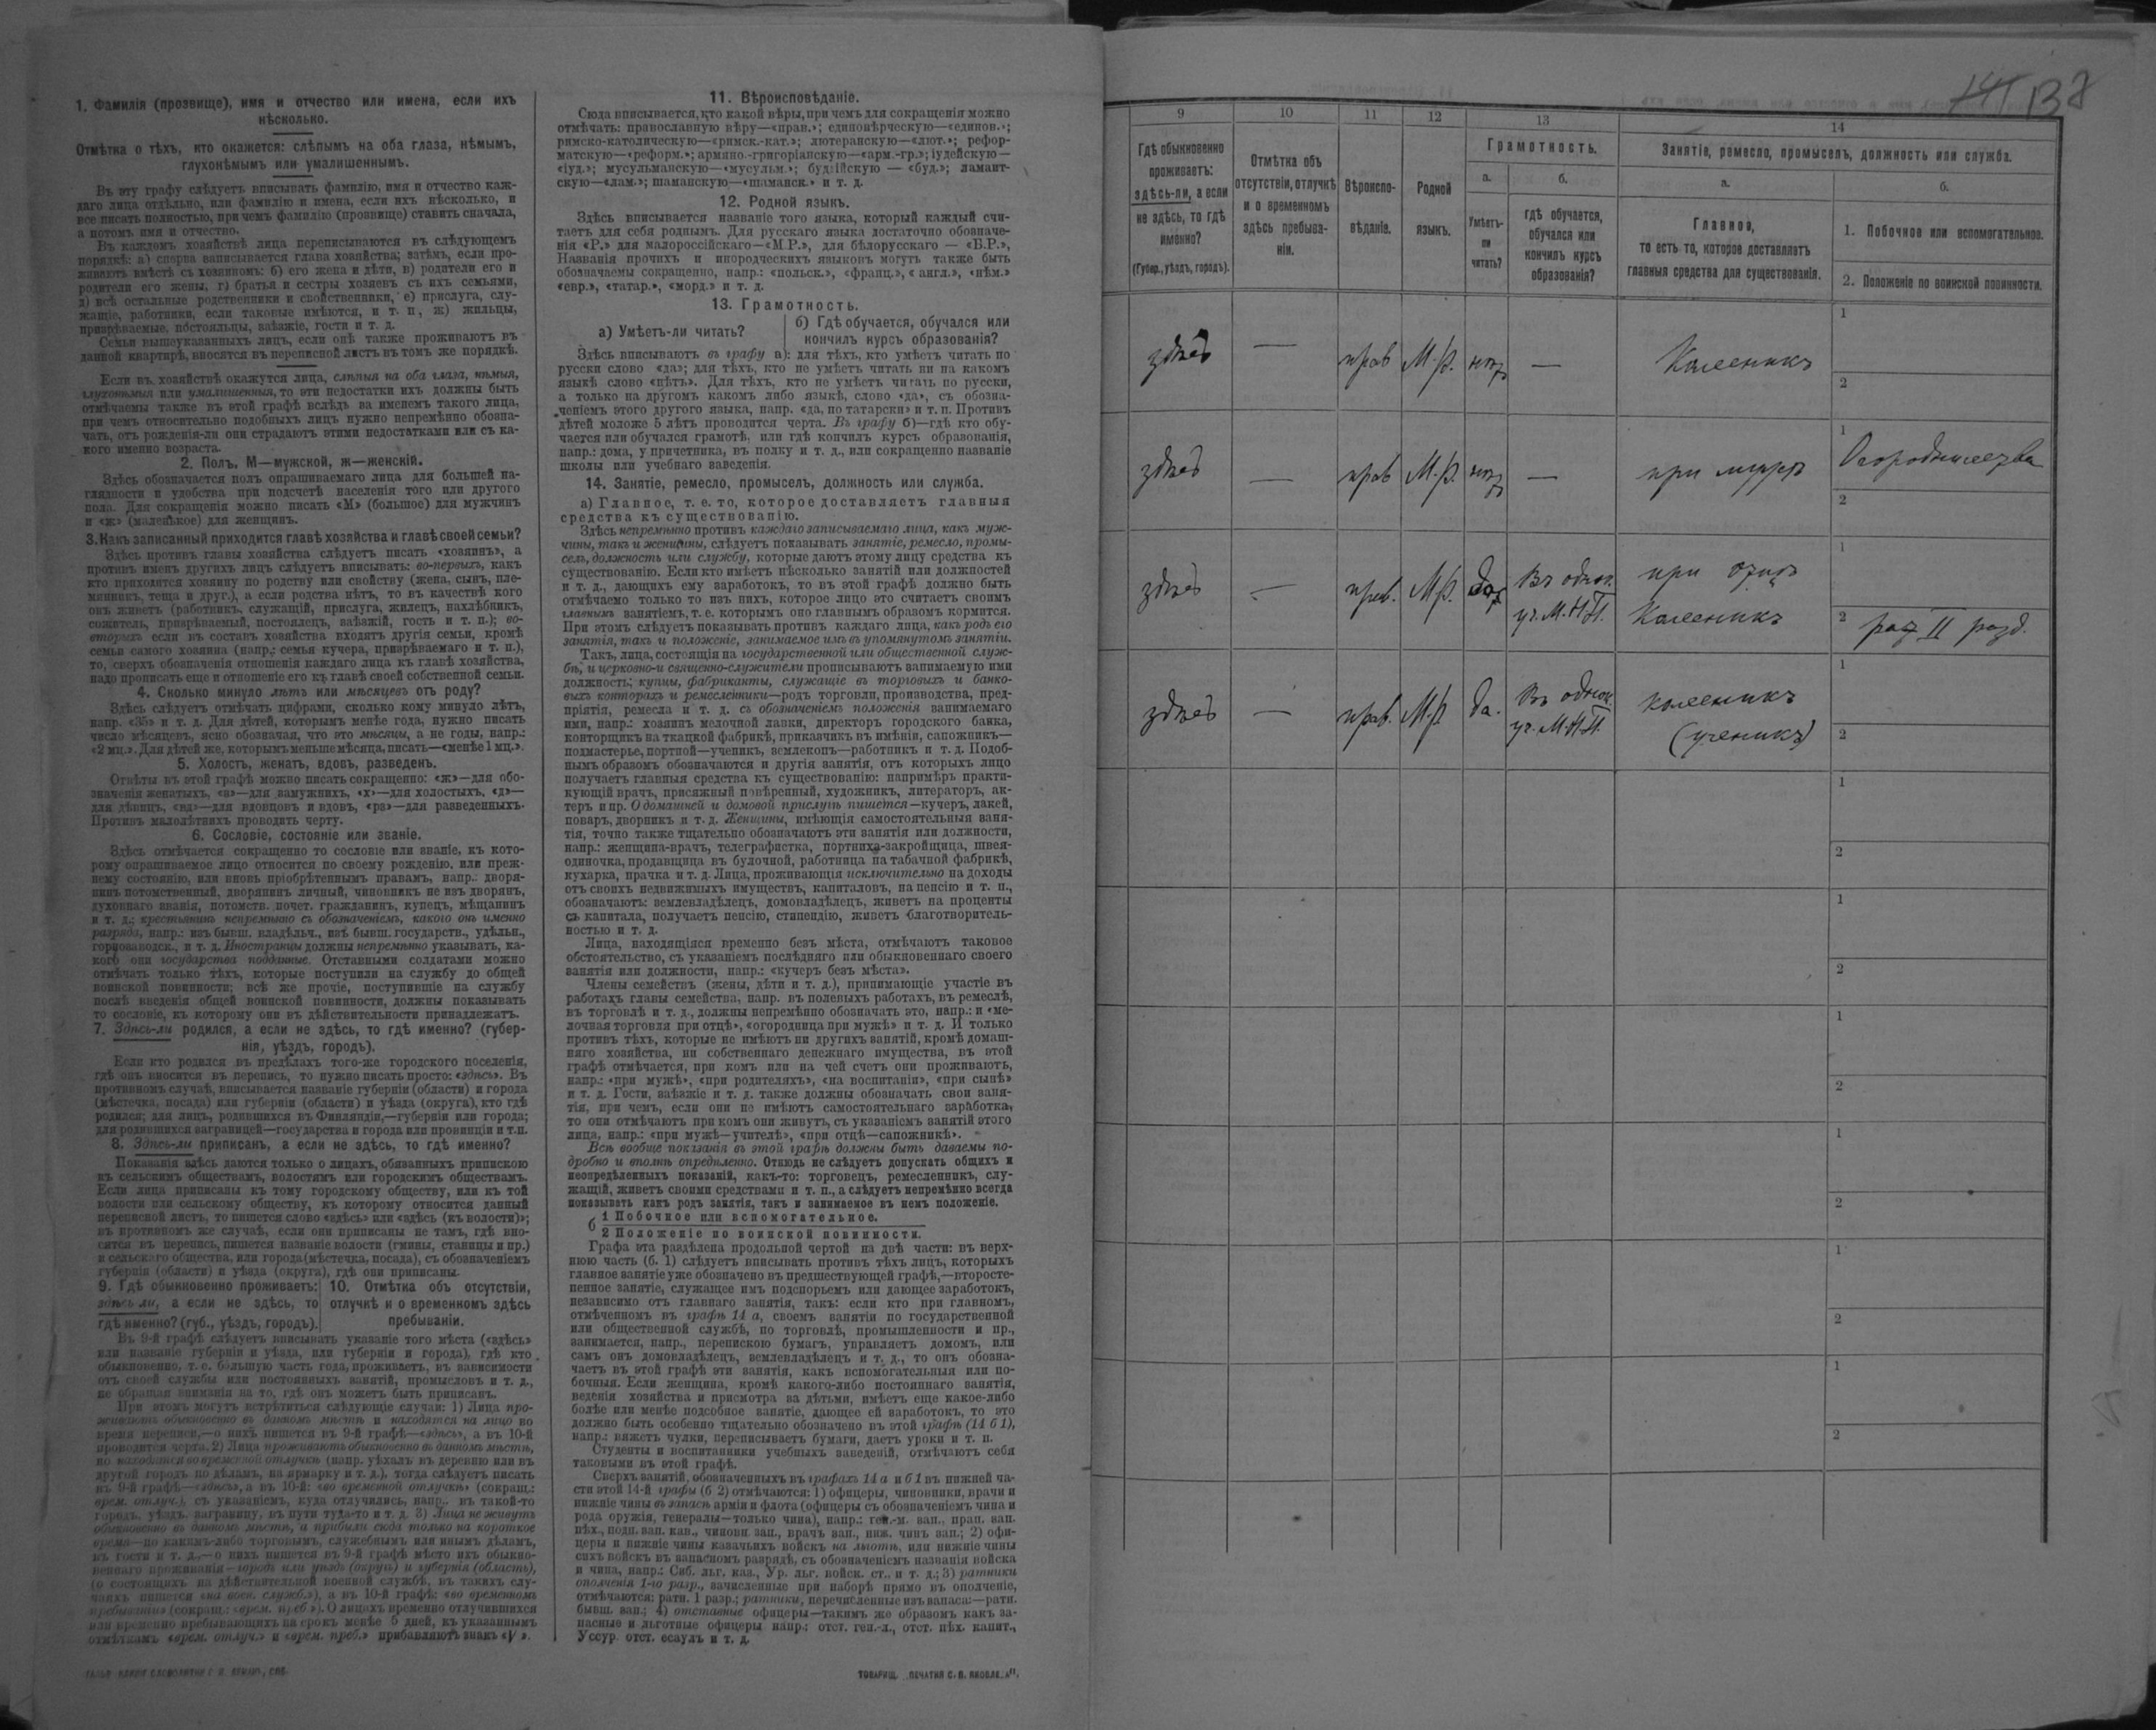 1. Фамилія (прозвище), имя и отчество или имена, если ихъ
нѣсколько.
Отмѣтка о тѣхъ, кто окажется: слѣпымъ на оба глаза, нѣмымъ,
глухонѣмымъ или умалишеннымъ.
Въ эту графу слѣдуетъ вписывать фамилію, имя и отчество каж-
даго лица отдѣльно, или фамилію и имена, если ихъ нѣсколько, и
все писать полностью, при чемъ фамилію (прозвище) ставить сначала,
а потомъ имя и отчество.
Въ каждомъ хозяйствѣ лица переписываются въ слѣдующемъ
порядкѣ: а) сперва записывается глава хозяйства; затѣмъ, если про-
живаютъ вмѣстѣ съ хозяиномъ: б) его жена и дѣти, в) родители его и
родители его жены, г) братья и сестры хозяевъ съ ихъ семьями,
д) всѣ остальные родственники и свойственники, е) прислуга, слу-
жащіе, работники, если таковые имѣются, и т. п., ж) жильцы,
призрѣваемые, постояльцы, заѣзжіе, гости и т. д.
Семьи вышеуказанныхъ лицъ, если онѣ также проживаютъ въ
данной квартирѣ, вносятся въ переписной листъ въ томъ же порядкѣ.
Если въ хозяйствѣ окажутся лица, слѣпыя на оба глаза, нѣмыя,
глухонѣмыя или умалишенныя, то эти недостатки ихъ должны быть
отмѣчаемы также въ этой графѣ вслѣдъ за именемъ такого лица,
при чемъ относительно подобныхъ лицъ нужно непремѣнно обозна-
чать, отъ рожденія-ли они страдаютъ этими недостатками или съ ка-
кого именно возраста.
2. Полъ. М—мужской, ж—женскій.
Здѣсь обозначается полъ опрашиваемаго лица для большей на-
глядности и удобства при подсчетѣ населенія того или другого
пола. Для сокращенія можно писать «М» (большое) для мужчинъ
и «ж» (маленькое) для женщинъ.
3. Какъ записанный приходится главѣ хозяйства и главѣ своей семьи?
Здѣсь противъ главы хозяйства слѣдуетъ писать «хозяинъ», а
противъ именъ другихъ лицъ слѣдуетъ вписывать: во-первыхъ, какъ
кто приходится хозяину по родству или свойству (жена, сынъ, пле-
мянникъ, теща и друг.), а если родства нѣтъ, то въ качествѣ кого
онъ живетъ (работникъ, служащій, прислуга, жилецъ, нахлѣбникъ,
сожитель, призрѣваемый, постоялецъ, заѣзжій, гость и т. п.); во-
вторыхъ если въ составъ хозяйства входятъ другія семьи, кромѣ
семьи самого хозяина (напр.: семья кучера, призрѣваемаго и т. п.),
то, сверхъ обозначенія отношенія каждаго лица къ главѣ хозяйства,
надо прописать еще и отношеніе его къ главѣ своей собственной семьи.
4. Сколько минуло лѣтъ или мѣсяцевъ отъ роду?
Здѣсь слѣдуетъ отмѣчать цифрами, сколько кому минуло лѣтъ,
напр. «35» и т. д. Для дѣтей, которымъ менѣе года, нужно писать
число мѣсяцевъ, ясно обозначая, что это мѣсяцы, а не годы, напр.:
«2 мц.». Для дѣтей же, которымъ меньше мѣсяца, писать—«менѣе 1 мц.».
5. Холостъ, женатъ, вдовъ, разведенъ.
Отвѣты въ этой графѣ можно писать сокращенно: «ж»—для обо-
значенія женатыхъ, «з»—для замужнихъ, «х»—для холостыхъ, «д»—
для дѣвицъ, «вд»—для вдовцовъ и вдовъ, «рз»—для разведенныхъ.
Противъ малолѣтнихъ проводить черту.
6. Сословіе, состояніе или званіе.
Здѣсь отмѣчается сокращенно то сословіе или званіе, къ кото-
рому опрашиваемое лицо относится по своему рожденію, или преж-
нему состоянію, или вновь пріобрѣтеннымъ правамъ, напр.: дворя-
нинъ потомственный, дворянинъ личный, чиновникъ не изъ дворянъ,
духовнаго званія, потомств. почет. гражданинъ, купецъ, мѣщанинъ
и т. д.; крестьянинъ непремѣнно съ обозначеніемъ, какого онъ именно
разряда, напр.: изъ бывш. владѣльч., изъ бывш. государств., удѣльн.,
горнозаводск., и т. д. Иностранцы должны непремѣнно указывать, ка-
кого они государства подданные. Отставными солдатами можно
отмѣчать только тѣхъ, которые поступили на службу до общей
воинской повинности; всѣ же прочіе, поступившіе на службу
послѣ введенія общей воинской повинности, должны показывать
то сословіе, къ которому они въ дѣйствительности принадлежатъ.
7. Здѣсь-ли родился, а если не здѣсь, то гдѣ именно? (губер-
нія, уѣздъ, городъ).
Если кто родился въ предѣлахъ того-же городского поселенія,
гдѣ онъ вносится въ перепись, то нужно писать просто: «здѣсь». Въ
противномъ случаѣ, вписывается названіе губерніи (области) и города
(мѣстечка, посада) или губерніи (области) и уѣзда (округа), кто гдѣ
родился; для лицъ, родившихся въ Финляндіи,—губерніи или города;
для родившихся заграницей—государства и города или провинціи и т.п.
8. Здѣсь-ли приписанъ, а если не здѣсь, то гдѣ именно?
Показанія здѣсь даются только о лицахъ, обязанныхъ припискою
къ сельскимъ обществамъ, волостямъ или городскимъ обществамъ.
Если лица приписаны къ тому городскому обществу, или къ той
волости или сельскому обществу, къ которому относится данный
переписной листъ, то пишется слово «здѣсь» или «здѣсь (къ волости)»;
въ противномъ же случаѣ, если они приписаны не тамъ, гдѣ вно-
сятся въ перепись, пишется названіе волости (гмины, станицы и пр.)
и сельскаго общества, или города (мѣстечка, посада), съ обозначеніемъ
губерніи (области) и уѣзда (округа), гдѣ они приписаны.
9. Гдѣ обыкновенно проживаетъ:
здѣсь ли, а если не здѣсь, то
гдѣ именно? (губ., уѣздъ, городъ).
10. Отмѣтка объ отсутствіи,
отлучкѣ и о временномъ здѣсь
пребываніи.
Въ 9-й графѣ слѣдуетъ вписывать указаніе того мѣста («здѣсь»
или названіе губерніи и уѣзда, или губерніи и города), гдѣ кто
обыкновенно, т. е. большую часть года, проживаетъ, въ зависимости
отъ своей службы или постоянныхъ занятій, промысловъ и т. д.,
не обращая вниманія на то, гдѣ онъ можетъ быть приписанъ.
При этомъ могутъ встрѣтиться слѣдующіе случаи: 1) Лица про-
живаютъ обыкновенно въ данномъ мѣстѣ и находятся на лицо во
время переписи,—о нихъ пишется въ 9-й графѣ—«здѣсь», а въ 10-й
проводится черта. 2) Лица проживаютъ обыкновенно въ данномъ мѣстѣ,
но находятся во временной отлучкѣ (напр. уѣхалъ въ деревню или въ
другой городъ по дѣламъ, на ярмарку и т. д.), тогда слѣдуетъ писать
въ 9-й графѣ—«здѣсь», а въ 10-й: «во временной отлучкѣ» (сокращ.:
врем. отлуч.), съ указаніемъ, куда отлучились, напр.. въ такой-то
городъ, уѣздъ, заграницу, въ пути туда-то и т. д. 3) Лица не живутъ
обыкновенно въ данномъ мѣстѣ, а прибыли сюда только на короткое
время—по какимъ-либо торговымъ, служебнымъ или инымъ дѣламъ,
въ гости и т. д.,—о нихъ пишется въ 9-й графѣ мѣсто ихъ обыкно-
веннаго проживанія—городъ или уѣздъ (округъ) и губернія (область),
(о состоящихъ на дѣйствительной военной службѣ, въ такихъ слу-
чаяхъ пишется «на воен. служб.»), а въ 10-й графѣ: «во временномъ
пребываніи» (сокращ.: «врем. преб.»). О лицахъ временно отлучившихся
или временно пребывающихъ на срокъ менѣе 5 дней, къ указаннымъ
отмѣткамъ «врем. отлуч.» и «врем. преб.» прибавляютъ знакъ «V».
11. Вѣроисповѣданіе.
Сюда вписывается, кто какой вѣры, при чемъ для сокращенія можно
отмѣчать: православную вѣру—«прав.»; единовѣрческую—«единов.»;
римско-католическую—«римск.-кат.»; лютеранскую—«лют.»; рефор-
матскую—«реформ.»; армяно.-григоріанскую—«арм.-гр.»; іудейскую—
«іуд.»; мусульманскую—«мусульм.»; буддійскую — «буд.»; ламаит-
скую—«лам.»; шаманскую—«шаманск.» и т. д.
12. Родной языкъ.
Здѣсь вписывается названіе того языка, который каждый счи-
таетъ для себя роднымъ. Для русскаго языка достаточно обозначе-
нія «Р.» для малороссійскаго—«М.Р.», для бѣлорусскаго — «Б.Р.»,
Названія прочихъ и инородческихъ языковъ могутъ также быть
обозначаемы сокращенно, напр.: «польск.», «франц.», « англ.», «нѣм.»
«евр.», «татар.», «морд.» и т. д.
13. Грамотность.
а) Умѣетъ-ли читать?
б) Гдѣ обучается, обучался или
кончилъ курсъ образованія?
Здѣсь вписываютъ въ графу а): для тѣхъ, кто умѣетъ читать по
русски слово «да»; для тѣхъ, кто не умѣетъ читать ни на какомъ
языкѣ слово «нѣтъ». Для тѣхъ, кто не умѣетъ читать по русски,
а только на другомъ какомъ либо языкѣ, слово «да», съ обозна-
ченіемъ этого другого языка, напр. «да, по татарски» и т. п. Противъ
дѣтей моложе 5 лѣтъ проводится черта. Въ графу б)—гдѣ кто обу-
чается или обучался грамотѣ, или гдѣ кончилъ курсъ образованія,
напр.: дома, у причетника, въ полку и т. д., или сокращенно названіе
школы или учебнаго заведенія.
14. Занятіе, ремесло, промыселъ, должность или служба.
а) Главное, т. е. то, которое доставляетъ главныя
средства къ существованію.
Здѣсь непремѣнно противъ каждаго записываемаго лица, какъ муж-
чины, такъ и женщины, слѣдуетъ показывать занятіе, ремесло, промы-
селъ, должность или службу, которые даютъ этому лицу средства къ
существованію. Если кто имѣетъ нѣсколько занятій или должностей
и т. д., дающихъ ему заработокъ, то въ этой графѣ должно быть
отмѣчаемо только то изъ нихъ, которое лицо это считаетъ своимъ
главнымъ занятіемъ, т. е. которымъ оно главнымъ образомъ кормится.
При этомъ слѣдуетъ показывать противъ каждаго лица, какъ родъ его
занятія, такъ и положеніе, занимаемое имъ въ упомянутомъ занятіи.
Такъ, лица, состоящія на государственной или общественной служ-
бѣ, и церковно-и священно-служители прописываютъ занимаемую ими
должность; купцы, фабриканты, служащіе въ торговыхъ и банко-
выхъ конторахъ и ремесленники—родъ торговли, производства, пред-
пріятія, ремесла и т. д. съ обозначеніемъ положенія занимаемаго
ими, напр.: хозяинъ мелочной лавки, директоръ городского банка,
конторщикъ на ткацкой фабрикѣ, приказчикъ въ имѣніи, сапожникъ—
подмастерье, портной—ученикъ, землекопъ—работникъ и т. д. Подоб-
нымъ образомъ обозначаются и другія занятія, отъ которыхъ лицо
получаетъ главныя средства къ существованію: напримѣръ практи-
кующій врачъ, присяжный повѣренный, художникъ, литераторъ, ак-
теръ и пр. О домашней и домовой прислугѣ пишется—кучеръ, лакей,
поваръ, дворникъ и т. д. Женщины, имѣющія самостоятельныя заня-
тія, точно также тщательно обозначаютъ эти занятія или должности,
напр.: женщина-врачъ, телеграфистка, портниха-закройщица, швея-
одиночка, продавщица въ булочной, работница на табачной фабрикѣ,
кухарка, прачка и т. д. Лица, проживающія исключительно на доходы
отъ своихъ недвижимыхъ имуществъ, капиталовъ, на пенсію и т. п.,
обозначаютъ: землевладѣлецъ, домовладѣлецъ, живетъ на проценты
съ капитала, получаетъ пенсію, стипендію, живетъ благотворитель-
ностью и т. д.
Лица, находящіяся временно безъ мѣста, отмѣчаютъ таковое
обстоятельство, съ указаніемъ послѣдняго или обыкновеннаго своего
занятія или должности, напр.: «кучеръ безъ мѣста».
Члены семействъ (жены, дѣти и т. д.), принимающіе участіе въ
работахъ главы семейства, напр. въ полевыхъ работахъ, въ ремеслѣ,
въ торговлѣ и т. д., должны непремѣнно обозначать это, напр.: и «ме-
лочная торговля при отцѣ», «огородница при мужѣ» и т. д. И только
противъ тѣхъ, которые не имѣютъ ни другихъ занятій, кромѣ домаш-
няго хозяйства, ни собственнаго денежнаго имущества, въ этой
графѣ отмѣчается, при комъ или на чей счетъ они проживаютъ,
напр.: «при мужѣ», «при родителяхъ», «на воспитаніи», «при сынѣ»
и т. д. Гости, заѣзжіе и т. д. также должны обозначать свои заня-
тія, при чемъ, если они не имѣютъ самостоятельнаго заработка,
то они отмѣчаютъ при комъ они живутъ, съ указаніемъ занятій этого
лица, напр.: «при мужѣ—учителѣ», «при отцѣ—сапожникѣ».
Всѣ вообще показанія въ этой графѣ должны быть даваемы по-
дробно и вполнѣ опредѣленно. Отнюдь не слѣдуетъ допускать общихъ и
неопредѣленныхъ показаній, какъ-то: торговецъ, ремесленникъ, слу-
жащій, живетъ своими средствами и т. п., а слѣдуетъ непремѣнно всегда
показывать какъ родъ занятія, такъ и занимаемое въ немъ положеніе.
1 Побочное или вспомогательное.
б
2 Положеніе по воинской повинности.
Графа эта раздѣлена продольной чертой на двѣ части: въ верх-
нюю часть (б. 1) слѣдуетъ вписывать противъ тѣхъ лицъ, которыхъ
главное занятіе уже обозначено въ предшествующей графѣ,—второсте-
пенное занятіе, служащее имъ подспорьемъ или дающее заработокъ,
независимо отъ главнаго занятія, такъ: если кто при главномъ,
отмѣченномъ въ графѣ 14 а, своемъ занятіи по государственной
или общественной службѣ, по торговлѣ, промышленности и пр.,
занимается, напр., перепискою бумагъ, управляетъ домомъ, или
самъ онъ домовладѣлецъ, землевладѣлецъ и т. д., то онъ обозна-
чаетъ въ этой графѣ эти занятія, какъ вспомогательныя или по-
бочныя. Если женщина, кромѣ какого-либо постояннаго занятія,
веденія хозяйства и присмотра за дѣтьми, имѣетъ еще какое-либо
болѣе или менѣе подсобное занятіе, дающее ей заработокъ, то это
должно быть особенно тщательно обозначено въ этой графѣ (14 б 1),
напр.: вяжетъ чулки, переписываетъ бумаги, даетъ уроки и т. п.
Студенты и воспитанники учебныхъ заведеній, отмѣчаютъ себя
таковыми въ этой графѣ.
Сверхъ занятій, обозначенныхъ въ графахъ 14 а и б 1 въ нижней ча-
сти этой 14-й графы (б 2) отмѣчаются: 1) офицеры, чиновники, врачи и
нижніе чины въ запасѣ арміи и флота (офицеры съ обозначеніемъ чина и
рода оружія, генералы—только чина), напр.: ген.-м. зап., прап. зап.
пѣх., подп. зап. кав., чиновн. зап., врачъ зап., ниж. чинъ зап.; 2) офи-
церы и нижніе чины казачьихъ войскъ на льготѣ, или нижніе чины
сихъ войскъ въ запасномъ разрядѣ, съ обозначеніемъ названія войска
и чина, напр.: Сиб. льг. каз., Ур. льг. войск. ст.. и т. д.; 3) ратники
ополченія 1-го разр., зачисленные при наборѣ прямо въ ополченіе,
отмѣчаются: ратн. 1 разр.; ратники, перечисленные изъ запаса:—ратн.
бывш. зап.; 4) отставные офицеры—такимъ же образомъ какъ за-
пасные и льготные офицеры напр.: отст. ген.-л., отст. пѣх. капит.,
Уссур. отст. есаулъ и т. д.
ТОВАРИЩ. „ПЕЧАТНЯ С. П. ЯКОВЛЕВА“.
9 10 11 12 13 14
Гдѣ обыкновенно
проживаетъ:
здѣсь-ли, а если
не здѣсь, то гдѣ
именно?
(Губер., уѣздъ, городъ).
Отмѣтка объ
отсутствіи, отлучкѣ
и о временномъ
здѣсь пребыва-
ніи.
Вѣроиспо-
вѣданіе.
Родной
языкъ.
Грамотность.
а.
Умѣетъ-
ли
читать?
б.
гдѣ обучается,
обучался или
кончилъ курсъ
образованія?
Занятіе, ремесло, промыселъ, должность или служба.
а.
Главное,
то есть то, которое доставляетъ
главныя средства для существованія.
б.
1. Побочное или вспомогательное.
2. Положеніе по воинской повинности.
здѣсь — прав М.р. нѣтъ — Колесникъ 1
2
здѣсь — прав М.р. нѣтъ — при мужѣ 1 Огородничество
2
здѣсь — прав. М.р. да Въ однок. при отцѣ 1
уч. М.Н.П. Колесникъ 2 рат II разр.
здѣсь — прав. М.р. да. Въ однок. колесникъ 1
уч. М.Н.П. (ученикъ) 2
1
2
1
2
1
2
1
2
1
2
1
2